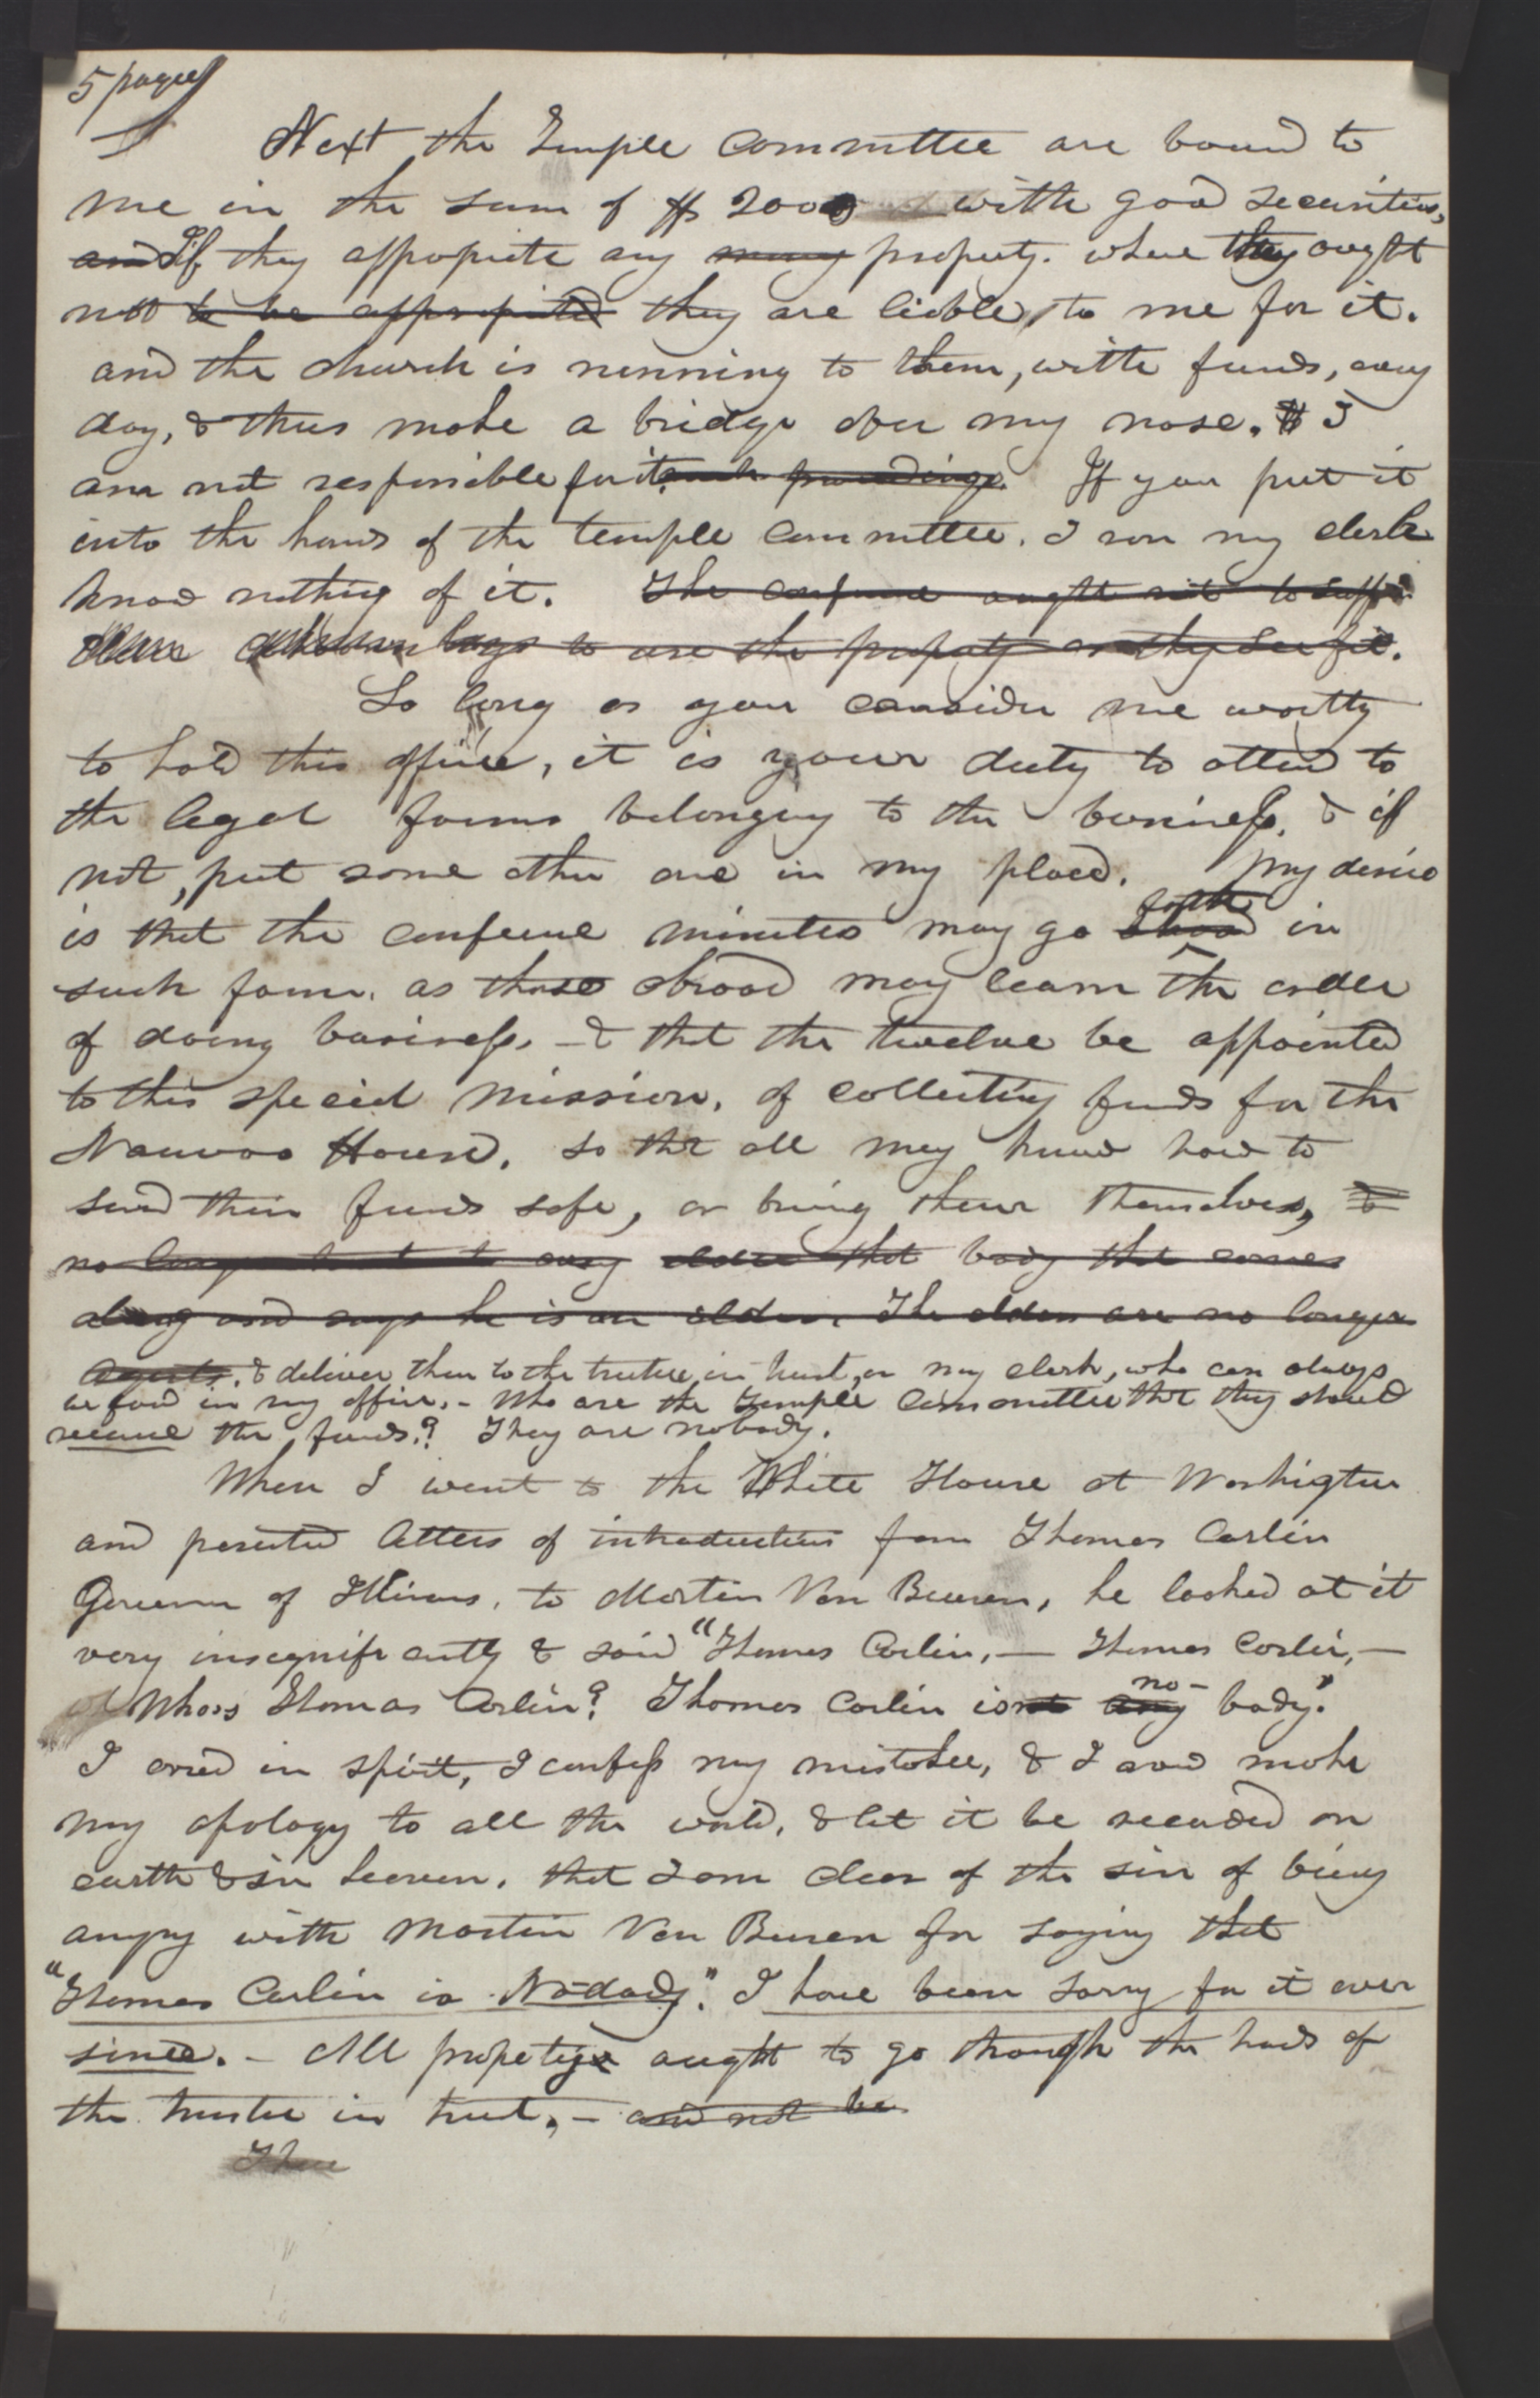 5 pages
Next the Temple committee are bound to
me in the sum of $ 2000 with good securities,
and If they appopriate any money property. where they ought
not to be appropriated they are liable, to me for it.
and the church is running to them, with funds, every
day, & thus make a bridge over my nose. I
am not responsible for it such proceedings. If you put it
into the hands of the temple committee. I nor my clerk
know nothing of it. The conference ought not to suffer
to use the property as they see fit.
So long as you consider me worthy
to hold this office, it is your duty to attend to
the legal forms belonging to the business. & if
not, put some other one in my place. My desire
is that the conference minutes may go abroad forth in
such form. as those abroad may learn the order
of doing business. - & that the twelve be appointed
to this special mission, of collecting funds for the
Nauvoo House. so that all may know how to
send their funds safe, or bring them themselves, &
no longer to every elder that body that comes
along and says he is an elder. The elders are no longer
agents. & deliver them to the trustee in trust, or my clerk, who can always
be foud in my office. - Who are the Temple Committee that they should
receive the funds.? They are nobody.
When I went to the White House at Washigton
and presented letters of introduction from Thomas Carlin
Governor of Illinois, to Martin Van Buren, he looked at it
very insegnificantly & said "Thomas Carlin, — Thomas Carlin, —
Whos Thomas Carlin? Thomas Carlin isnt any no- body."
I ered in spirit, I confess my mistake, & I and make
my apology to all the world, & let it be recorded on
earth & in heaven. that I am clear of the sin of being
angry with Martin Van Buren for saying that
"Thomas Carlin is No-body". I have been sorry for it ever
since. - All propetys aught to go through the hands of
the trustee in trust, - and not be
There